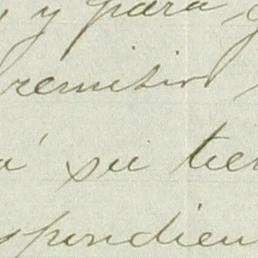 y para
remisión
su tie
spondien